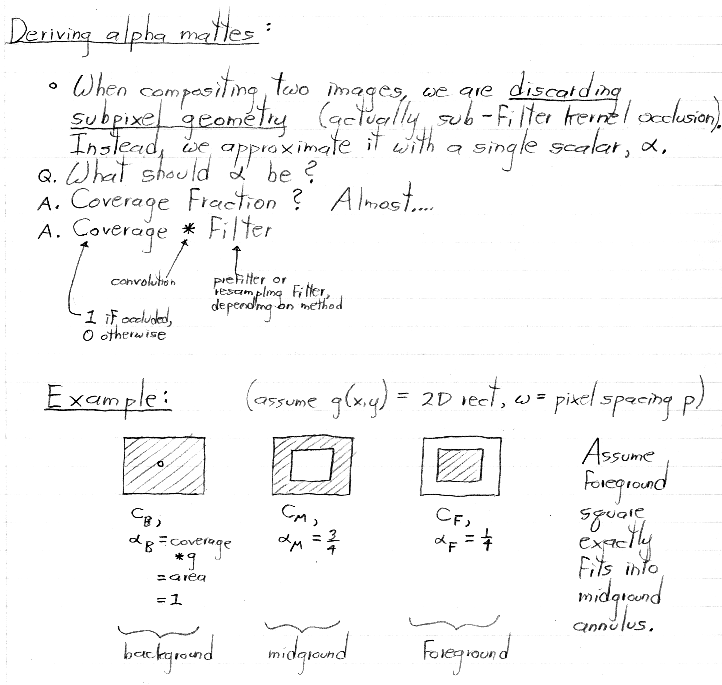 Deriving alpha mattes:
• When compositing two images, we are discarding
subpixel geometry (actually sub-filter kernel occlusion).
Instead, we approximate it with a single scalar, α.
Q. What should α be?
A. Coverage Fraction? Almost....
A. Coverage * Filter
convolution
prefilter or
resampling filter,
depending on method
1 if occluded,
0 otherwise
Example: (assume g(x,y) = 2D rect, ω = pixel spacing p)
C_B,
α_B = coverage
* g
= area
= 1
background
C_M,
α_M = 3/4
midground
C_F,
α_F = 1/4
foreground
Assume
foreground
square
exactly
fits into
midground
annulus.